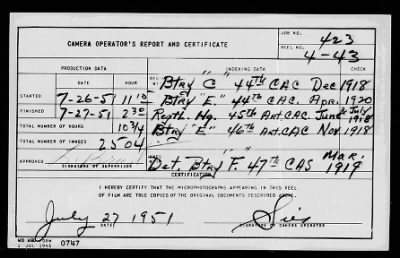 JOB NO. 423
CAMERA OPERATOR'S REPORT AND CERTIFICATE
REEL NO. 4-43
PRODUCTION DATA
INDEXING DATA
DATE HOUR CHECK
Btry "C" 44th CAC Dec 1918
STARTED 7-26-51 11 15
Btry "E" 44th CAC. Apr. 1920
FINISHED 7-27-51 2 30
Regtl. Hq. 45th Art. CAC June & July 1918
TOTAL NUMBER OF HOURS 10 3/4
Btry "E" 46th Art. CAC Nov 1918
TOTAL NUMBER OF IMAGES 2504
APPROVED
Det. Btry "F" 47th CAS Mar. 1919
SIGNATURE OF SUPERVISOR
CERTIFICATION
I HEREBY CERTIFY THAT THE MICROPHOTOGRAPHS APPEARING IN THIS REEL
OF FILM ARE TRUE COPIES OF THE ORIGINAL DOCUMENTS DESCRIBED ABOVE.
July 27 1951
DATE
SIGNATURE OF CAMERA OPERATOR
0747